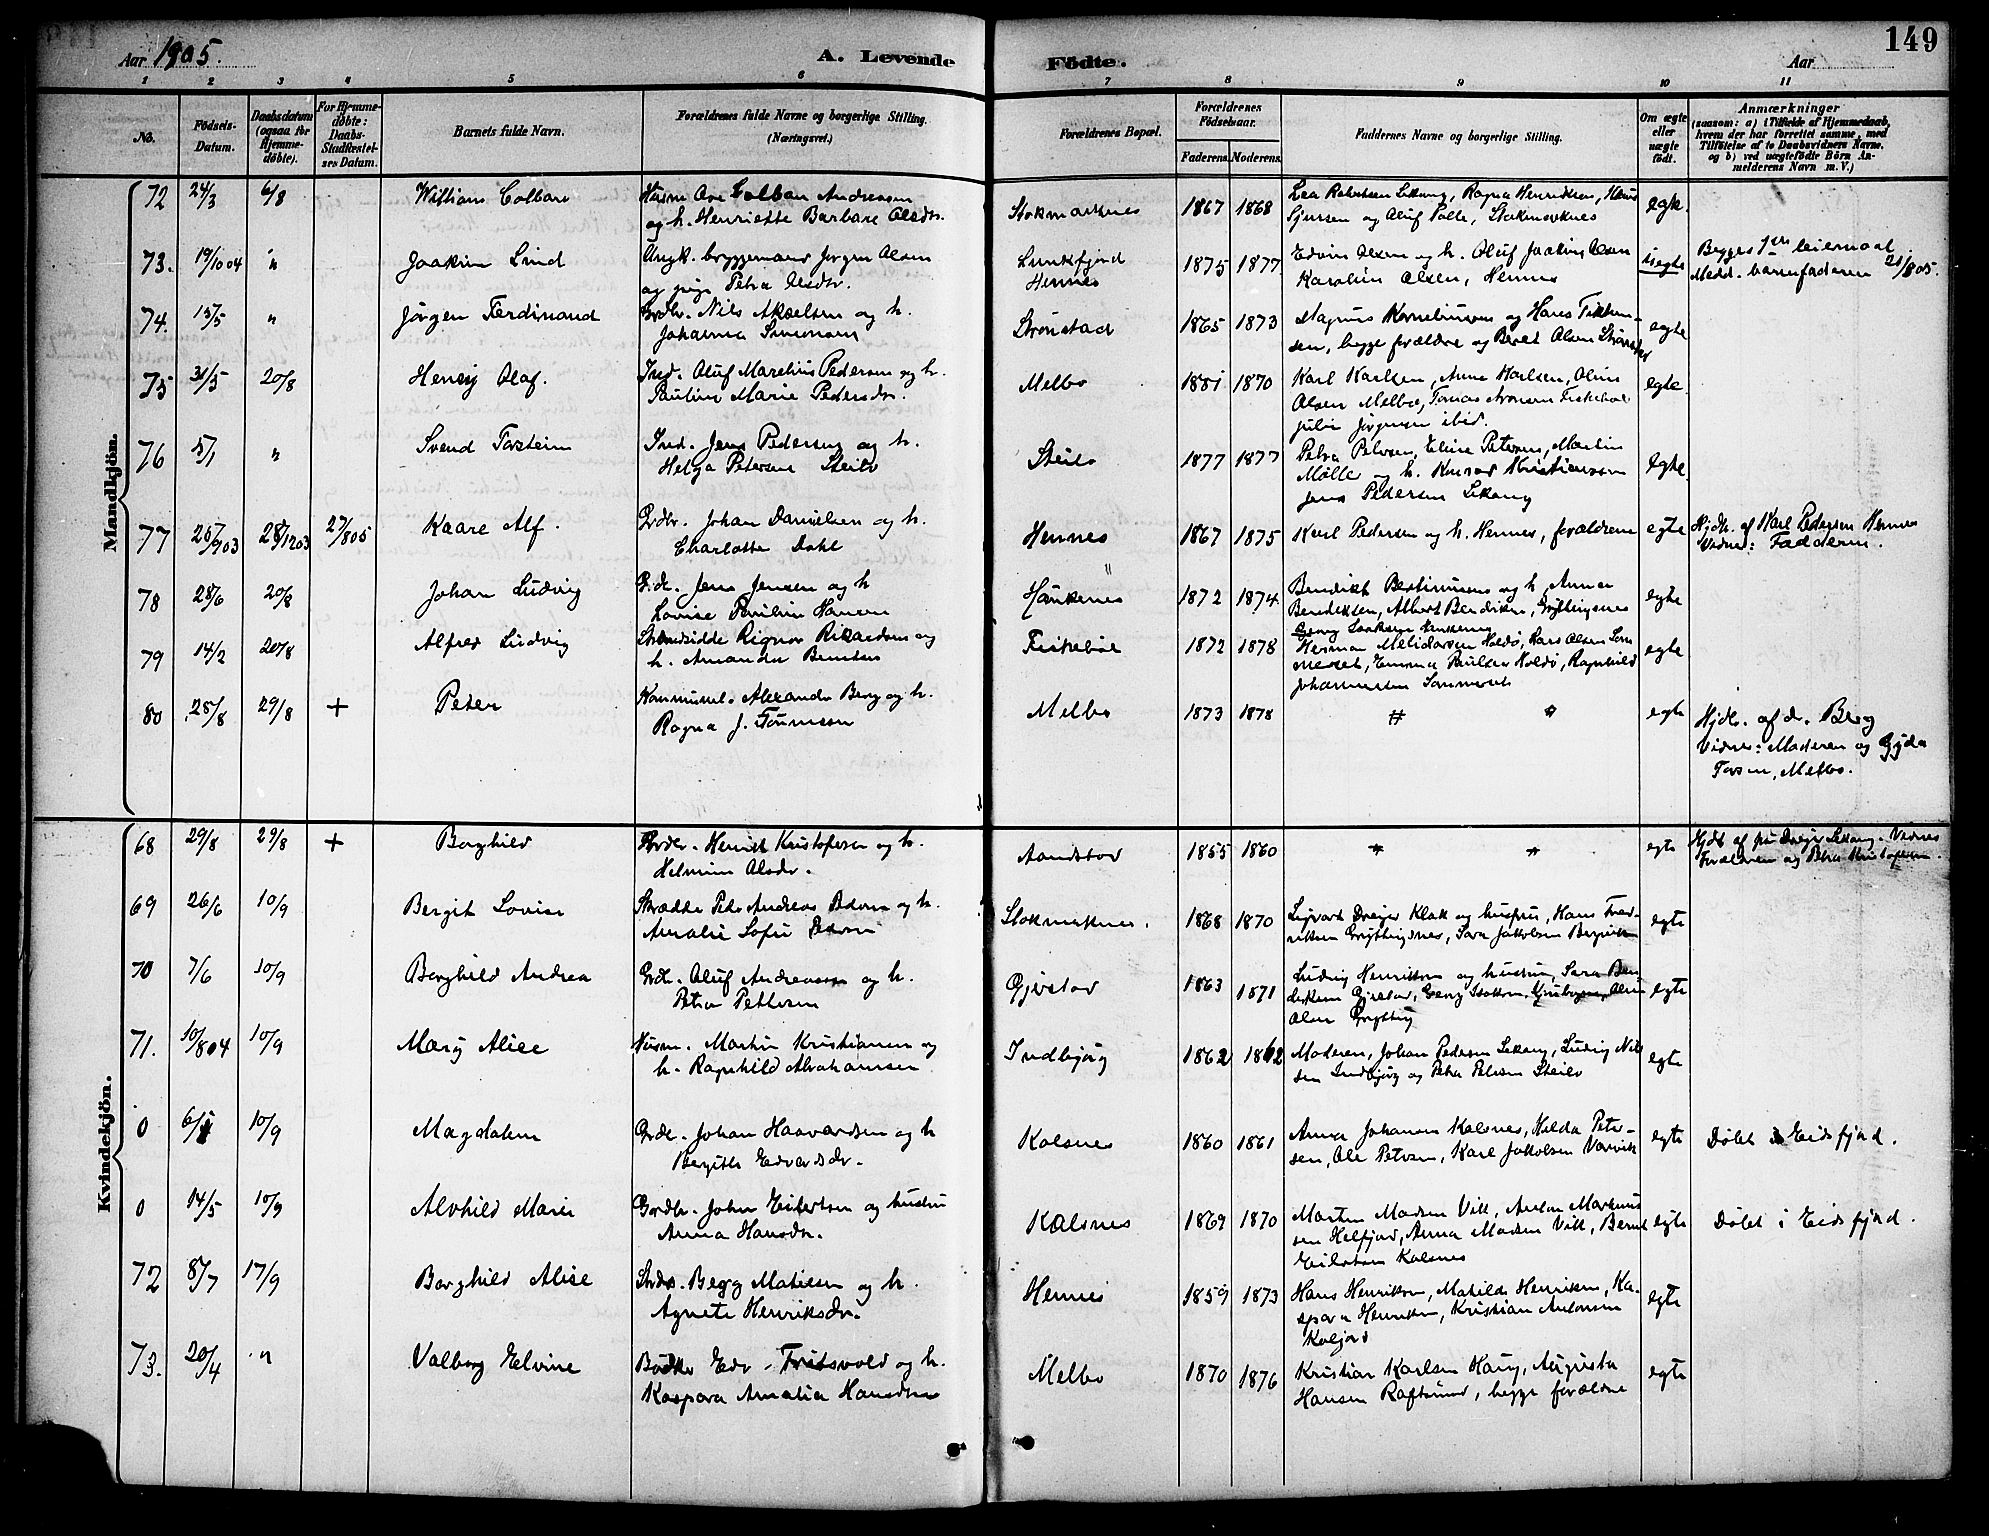 Aar 1905.
A. Levende Födte.
Aar
149
1 2 3 4 5 6 7 8 9 10 11
No.
Födsels-Datum.
Daabsdatum (ogsaa for Hjemme-döbte).
For Hjemme-döbte: Daabs-Stadfæstel-ses Datum.
Barnets fulde Navn.
Forældrenes fulde Navne og borgerlige Stilling. (Næringsvei.)
Forældrenes Bopæl.
Forældrenes Födselsaar.
Faderens. Moderens.
Faddernes Navne og borgerlige Stilling.
Om ægte eller uægte födt.
Anmærkninger
(saasom: a) i Tilfælde af Hjemmedaab, hvem der har forrettet samme, med Tilföielse af to Daabsvidners Navne. og b) ved uægtefödte Börn An-melderens Navn m. V.)
Mandkjön.
72 24/3 6/8 William Colban Husm. Ove Colban Andreassen
og h. Henriette Barbare Olsdtr. Stokmarknes 1867 1868 Lea Robertsen Lekang, Ragna Henriksen, Hans
Sjursen og Aluf Palle, Stokmarknes egte.
73. 19/10 04 " Joakim Lind Ungk. bryggemand Jørgen Olsen
og pige Petra Olsdtr. Lunkfjord
Hennes 1875 1877 Edvin Olsen og h. Oluf Joakim Olsen
Karoline Olsen, Hennes uegte Begges 1ste leiermaal.
Medd. barnefaderen 21/8 05.
74. 15/5 " Jörgen Ferdinand Grdbr. Nils Akselsen og h.
Johanna Simonsen Strönstad 1865 1873 Magnus Korneliussen og Hans
sen, begge forældre og Beret Olsen Strönstad egte
75 31/5 20/8 Henry Olaf. Ind. Oluf Marelius Pedersen og h.
Pauline Marie Pedersdr. Melbo 1881 1870 Karl Karlsen, Anna Karlsen,
Olsen Melbo, Tomas Aronsen Fiskebøl
Julie Jørgensen ibid. egte.
76 5/1 " Svend Torstein Ind. Jens Pedersen og h.
Helga Petersen Steilo Steilo 1877 1877 Petra Petersen, Eline Petersen, Martin
Mølle og h. Konrad Kristiansen
Jens Pedersen Lekang egte.
77 20/9 03 28/12 03 27/8 05 Kaare Alf. Grdbr. Johan Danielsen og h.
Charlotte Dahl Hennes 1867 1875 Karl Pedersen og h. Hennes, forældrene egte Hjdb. af Karl Pedersen Hennes
Vidner: Fadderne.
78 28/6 20/8 Johan Ludvig Jens Jensen og h
Lovise Pauline Hansen Haukenes 1872 1874 Benedikt og h. Anna
Bendiksen, Albert Bendiksen, Grytlingsnes
Georg Isaksen Haukenes egte
79 14/2 20/8 Alfred Ludvig Strandsidder Rignor Rikardsen og
h. Amanda Fiskebøl 1872 1878 Herman Melidorsen Holdö, Lars Olsen
Emma Paulsen Holdö, Ragnhild
Johannessen egte
80 28/8 29/8 + Peter Alexander Berg og h.
Ragna J. Melbo 1873 1878 # # egte Hjdb. af dr. Berg
Vidner: Moderen og Gyda
Melbo.
Kvindekjön.
68 29/8 29/8 + Borghild Grdbr. Henrik Kristofersen og h.
Helmine Olsdr. Aandstad 1855 1860 # # egte Hjdb af fru Dreyer Lekang. Vidner
Forældrene og Petra Kristofersen.
69 26/6 10/9 Bergit Lovise Skrædder Peder Andreas og h.
Amalie Sofie Stokmarknes. 1868 1870 Sigvart Dreyer Klak og hustru, Hans Fred-
riksen Grytlingsnes, Sara Jakobsen egte
70 7/6 10/9 Borghild Andrea Grdbr. Oluf Andreassen og h.
Petra Pettersen Gjerstad 1863 1871 Ludvig Henriksen og hustru, Sara Ben-
diksen Gjerstad, Georg Isaksen
Olsen Grytting egte
71. 10/8 04 10/9 Mary Alice Husm. Martin Kristiansen og
h. Ragnhild Abrahamsen Indbjörg 1862 1862 Moderen, Johan Pedersen Lekang, Ludvig Nil-
sen Indbjörg og Petra Petersen Steilo egte
0 6/5 10/9 Magdalene Grdbr. Johan Haavardsen og h
Bergitte Edvardsdr. Kalsnes 1860 1861 Anna Johansen Kalsnes, Hilda Peter-
sen, Ole Petersen, Karl Jakobsen egte Döbt i Eidsfjord.
0 14/5 10/9 Alvhild Marie Grdbr. John Eilertsen og hustru
Anna Hansdr. Kalsnes 1869 1870 Morten Madsen Vik, Anton Markus-
sen Helfjord, Anna Madsen Vik, Bernt
Eilertsen Kalsnes egte Döbt i Eidsfjord.
72 8/7 17/9 Borghild Alise Begg Matiesen og h.
Agnete Henriksdr. Hennes 1859 1873 Hans Henriksen, Matilde Henriksen, Ka-
spara Henriksen, Kristian Antonsen
Kaljord egte
73. 20/4 " Valborg Elvine Bødker Edv. Fritsvold og h.
Kaspara Amalia Hansdtr Melbo 1870 1876 Kristian Karlsen Haug, Augusta
Hansen Raftsund, begge forældre egte